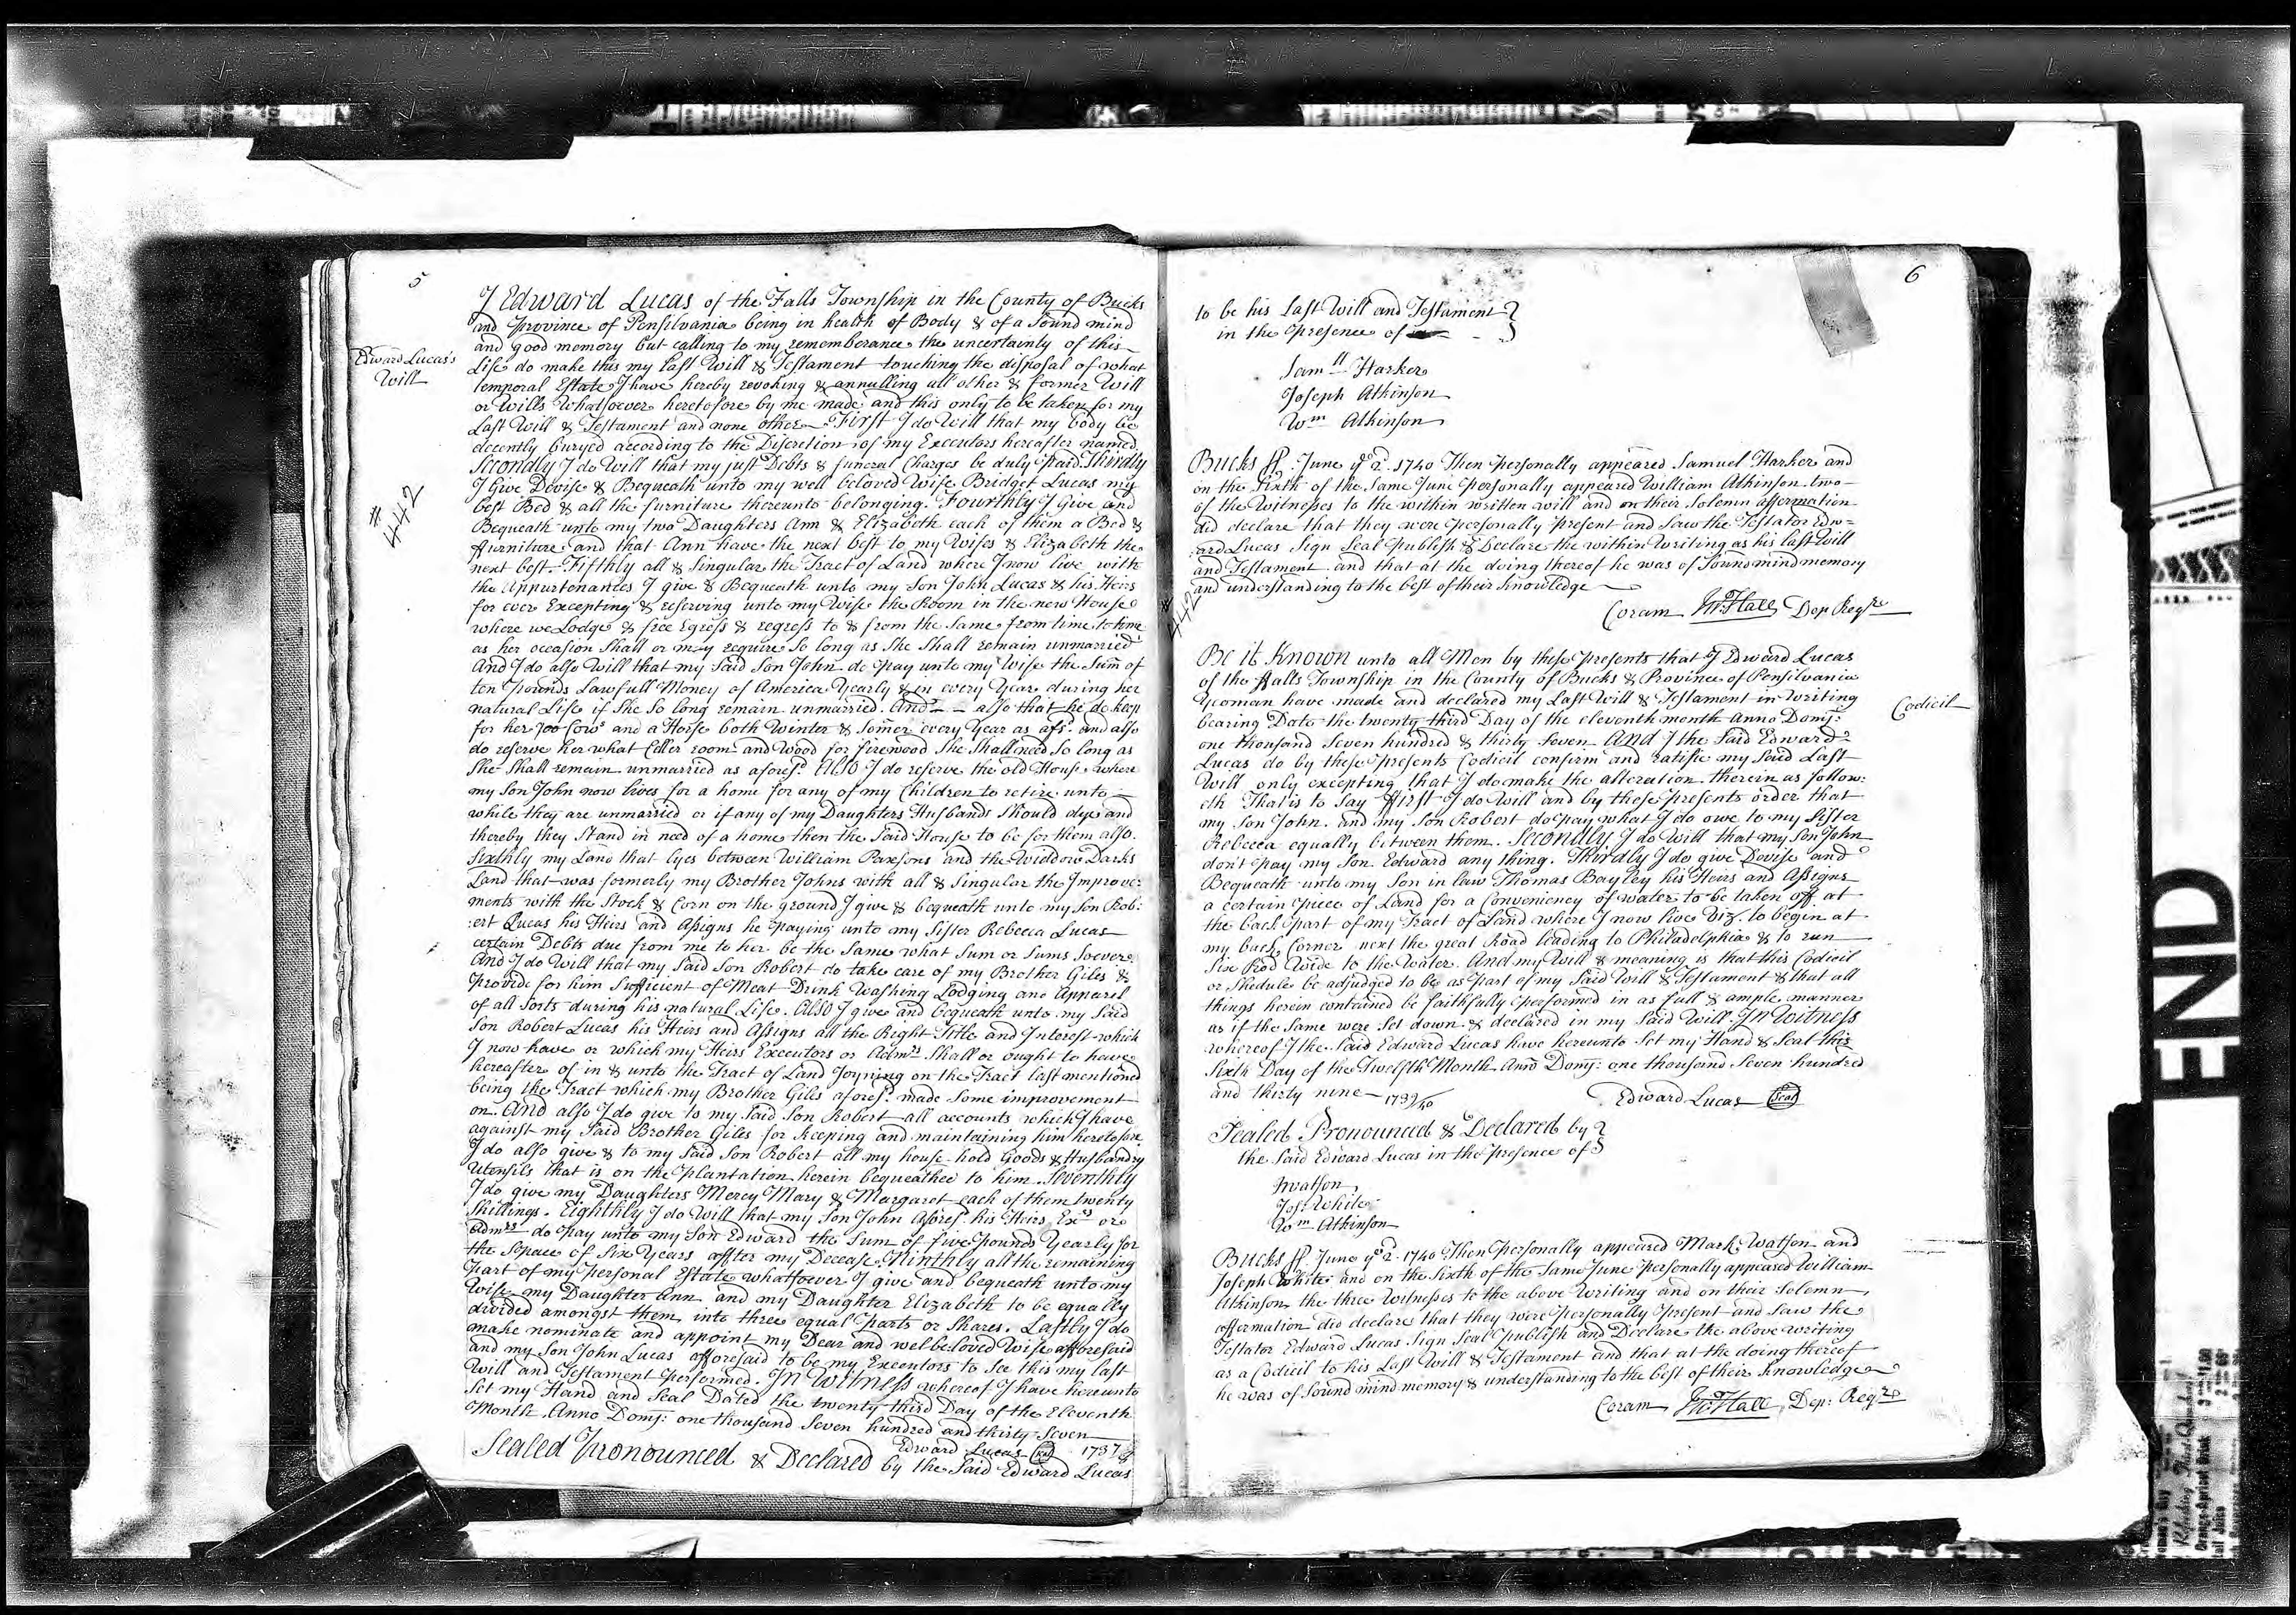 5
I Edward Lucas of the Falls Township in the County of Bucks
and Province of Pensilvania being in health of Body & of a Sound mind
and good memory but calling to my rememberance the uncertainty of this
Edward Lucas's
Will
Life do make this my last Will & Testament touching the disposal of what
temporal Estate I have hereby revoking & annulling all other & former Will
or Wills Whatsoever heretofore by me made and this only to be taken for my
Last Will & Testament and none other First I do Will that my body be
decently buryed according to the Discretion of my Executors hereafter named
Secondly I do Will that my just Debts & funeral Charges be duly paid. Thirdly
I Give Devise & Bequeath unto my well beloved Wife Bridget Lucas my
best Bed & all the furniture thereunto belonging. Fourthly I Give and
# 442
Bequeath unto my two Daughters Ann & Elizabeth each of them a Bed &
furniture and that Ann have the next best to my Wifes & Elizabeth the
next best. Fifthly all & Singular the Tract of Land where I now live with
the Appurtenances I give & Bequeath unto my Son John Lucas & his Heirs
for ever Excepting & reserving unto my Wife the Room in the new House
where we Lodge & free Egress & regress to & from the Same from time to time
as her occasion Shall or may require So long as She Shall remain unmarried
And I do also Will that my Said Son John do pay unto my Wife the Sum of
ten Pounds Lawfull Money of America Yearly & in every Year during her
natural Life if She So long remain unmarried. And - - also that he do keep
for her Cows and a Horse both Winter & Somer every Year as afs.d and also
do reserve her what Celler room and Wood for firewood She Shall need So long as
She Shall remain unmarried as afores.d Also I do reserve the old House where
my Son John now lives for a home for any of my Children to retire unto
while they are unmarried or if any of my Daughters Husbands Should dye and
thereby they Stand in need of a home then the Said House to be for them also.
Sixthly my Land that lyes between William Parsons and the Widdow Darks
Land that was formerly my Brother Johns with all & Singular the Improve:
ments with the Stock & Corn on the ground I give & bequeath unto my Son Rob:
:ert Lucas his Heirs and Assigns he paying unto my Sister Rebecca Lucas
certain Debts due from me to her be the Same what Sum or Sums Soever
And I do Will that my Said Son Robert do take care of my Brother Giles &
Provide for him Sufficient of Meat Drink Washing Lodging and Apparel
of all Sorts during his natural Life. Also I give and bequeath unto my Said
Son Robert Lucas his Heirs and Assigns all the Right Title and Interest which
I now have or which my Heirs Executors or Adm.rs Shall or ought to have
hereafter of in & unto the Tract of Land Joyning on the Tract last mentioned
being the Tract which my Brother Giles afores.d made Some improvement
on. And also I do give to my Said Son Robert all accounts which I have
against my Said Brother Giles for keeping and maintaining him heretofore.
I do also give & to my Said Son Robert all my house hold Goods & Husbandry
Utensils that is on the Plantation herein bequeathed to him. Seventhly
I do give my Daughters Mercy Mary & Margaret each of them twenty
Shillings. Eighthly I do Will that my Son John Afores.d his Heirs Ex.rs or
Adm.rs do pay unto my Son Edward the Sum of five Pounds Yearly for
the Space of Six Years affter my Decease. Ninthly all the remaining
part of my personal Estate whatsoever I give and bequeath unto my
Wife my Daughter Ann and my Daughter Elizabeth to be equally
divided amongst them into three equal parts or Shares. Lastly I do
make nominate and appoint my Dear and wel-beloved Wife afforesaid
and my Son John Lucas afforesaid to be my Executors to See this my last
Will and Testament performed. In Witness whereof I have hereunto
Set my Hand and Seal Dated the twenty third Day of the Eleventh
Month Anno Domj: one thousand Seven hundred and thirty Seven
Edward Lucas Seal 1737/8
Sealed Pronounced & Declared by the Said Edward Lucas
6
to be his Last Will and Testament
in the presence of
Sam.ll Harker
Joseph Atkinson
W.m Atkinson
Bucks ss. June y.e 2.d 1740 Then Personally appeared Samuel Harker and
on the Sixth of the Same June Personally appeared William Atkinson two
of the Witnesses to the within written will and on their Solemn affermation
did declare that they were personally present and Saw the Testator Edw=
:ard Lucas Sign Seal publish & Declare the within Writing as his last Will
and Testament and that at the doing thereof he was of Sound mind memory
and understanding to the best of their knowledge
# 442
Coram Hall Dep Reg.re
Be it Known unto all Men by these Presents that I Edward Lucas
of the ffalls Township in the County of Bucks & Province of Pensilvania
Yeoman have made and declared my Last Will & Testament in Writing
Codicil
bearing Date the twenty third Day of the eleventh month Anno Domj:
one thousand Seven hundred & thirty Seven And I the Said Edward
Lucas do by these Presents Codicil confirm and ratifie my Said Last
Will only excepting that I do make the alteration therein as follow:
eth That is to Say ffirst I do Will and by these presents order that
my Son John and my Son Robert do pay what I do owe to my Sister
Rebecca equally between them. Secondly I do Will that my Son John
don't pay my Son Edward any thing. Thirdly I do give Devise and
Bequeath unto my Son in law Thomas Bayley his Heirs and Assigns
a certain piece of Land for a Conveniency of water to be taken off at
the back part of my Tract of Land where I now live Viz. to begin at
my back Corner next the great Road leading to Philadelphia & to run
Six Rod Wide to the Water. And my Will & meaning is that this Codicil
or Shedule be adjudged to be as part of my Said Will & Testament & that all
things herein contained be faithfully performed in as full & ample manner
as if the Same were Set down & declared in my Said Will. In Witness
whereof I the Said Edward Lucas have hereunto Set my Hand & Seal this
Sixth Day of the Twelfth Month Anno Domj: one thousand Seven hundred
and thirty nine 1739/40 Edward Lucas Seal
Sealed Pronounced & Declared by
the Said Edward Lucas in the presence of
Mwatson
Jos: White
W.m Atkinson
Bucks ss June y.e 2.d 1740 Then Personally appeared Mark Watson and
Joseph White and on the Sixth of the Same June Personally appeared William
Atkinson the three Witnesses to the above Writing and on their Solemn
affermation did declare that they were personally present and Saw the
Testator Edward Lucas Sign Seal publish and Declare the above writing
as a Codicil to his Last Will & Testament and that at the doing thereof
he was of Sound mind memory & understanding to the best of their knowledge
Coram Hall Dep: Reg.re
END